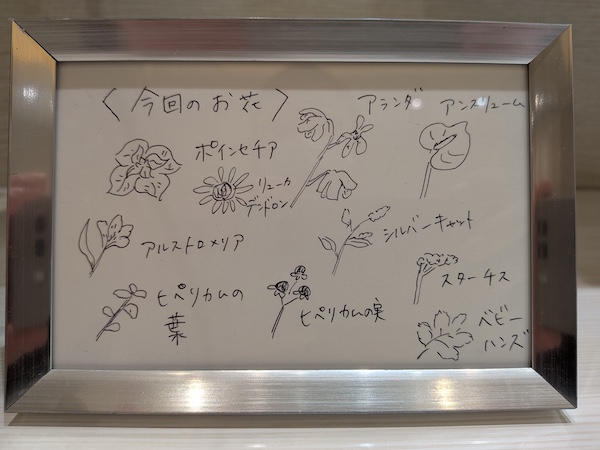 〈今回のお花〉
アランダ
アンスリューム
ポインセチア
リューカ
デンドロン
シルバーキャット
アルストロメリア
スターチス
ヒペリカムの
葉
ヒペリカムの実
ベビー
ハンズ